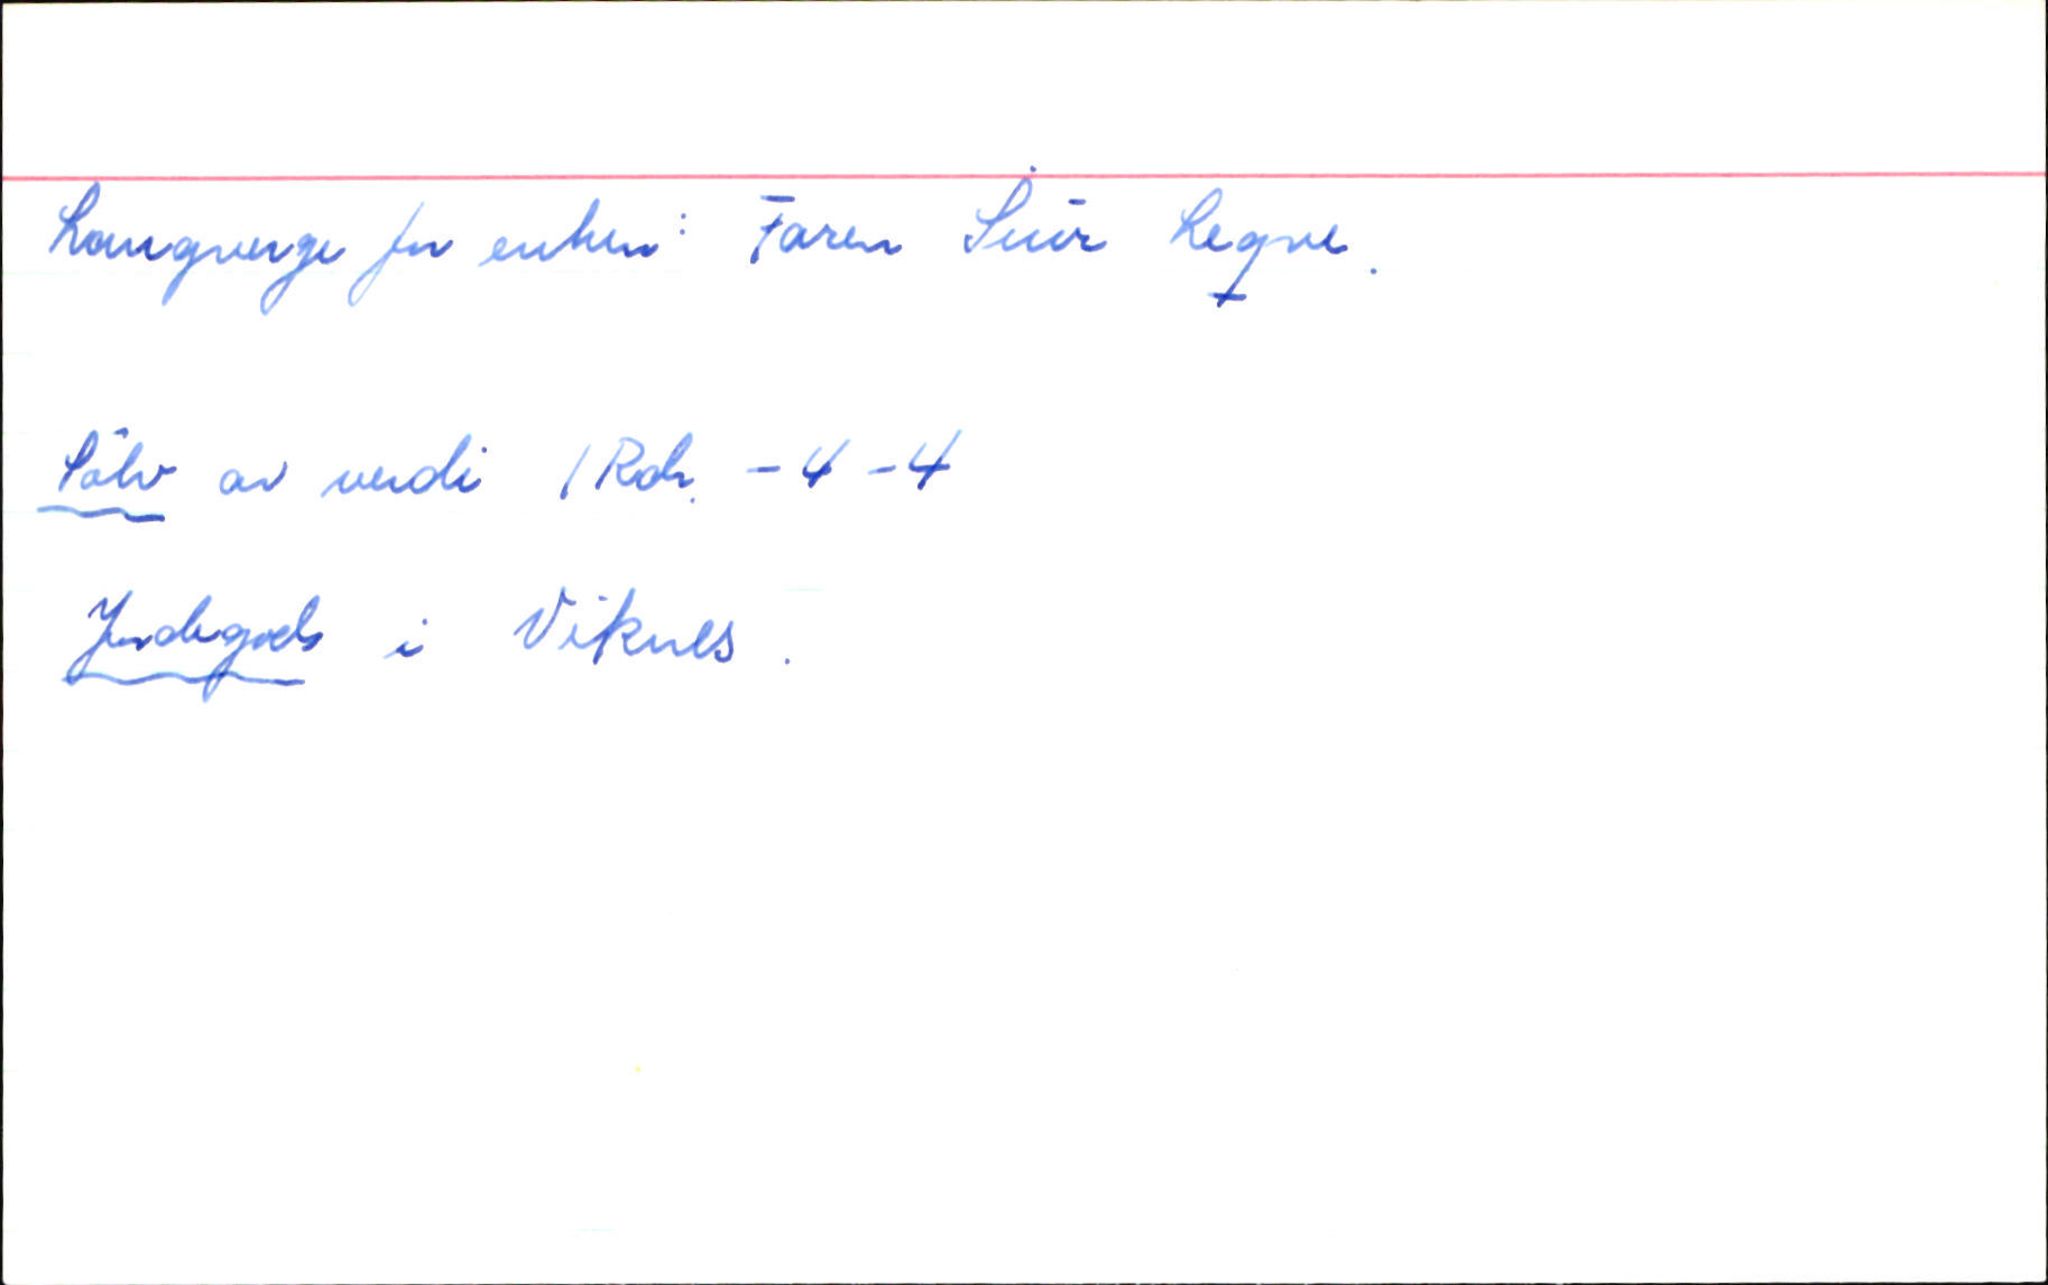 Laugverge for enken: Faren Siur Leqve.
Sölv av verdi 1 Rdr. - 4 - 4
Jordegods i Viknes.